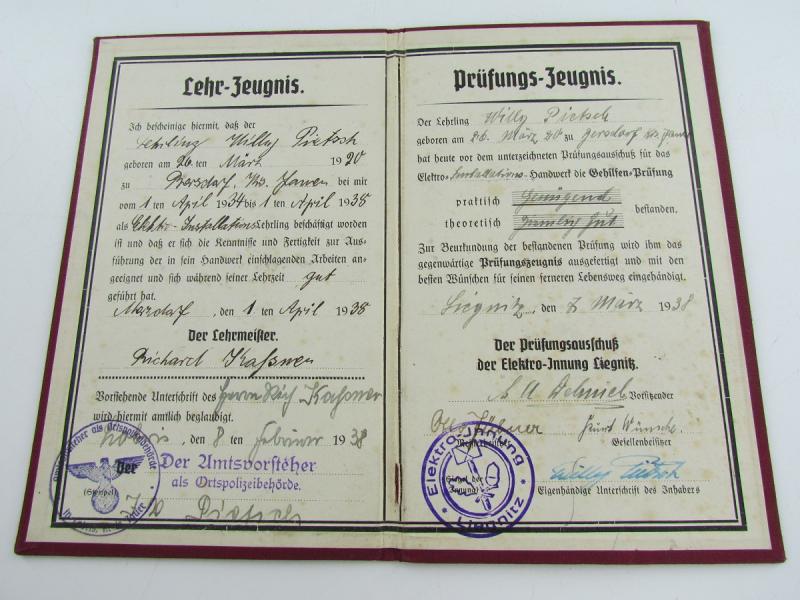 Lehr-Zeugnis.
Ich bescheinige hiermit, daß der
Lehrling Willy Pietsch
geboren am 26 ten März 1920
zu Kr. Jauer bei mir
vom 1 ten April 1934 bis 1 ten April 1938
als Elektro-Installations Lehrling beschäftigt worden
ist und daß er sich die Kenntnisse und Fertigkeit zur Aus-
führung der in sein Handwerk einschlagenden Arbeiten an-
geeignet und sich während seiner Lehrzeit gut
geführt hat.
, den 1 ten April 1938
Der Lehrmeister.
Richard Kaßner
Vorstehende Unterschrift des Herrn Rich Kaßner
wird hiermit amtlich beglaubigt.
, den 8 ten Februar 1938
Der
Der Amtsvorsteher
als Ortspolizeibehörde.
(Stempel)
Pietsch
Prüfungs-Zeugnis.
Der Lehrling Willy Pietsch
geboren am 26. März 20 zu Gersdorf Krs. Jauer
hat heute vor dem unterzeichneten Prüfungsausschuß für das
Elektro-Installations-Handwerk die Gehilfen-Prüfung
praktisch Genügend
theoretisch Ziemlich Gut
bestanden.
Zur Beurkundung der bestandenen Prüfung wird ihm das
gegenwärtige Prüfungszeugnis ausgefertigt und mit den
besten Wünschen für seinen ferneren Lebensweg eingehändigt.
Liegnitz, den 7 März 1938
Der Prüfungsausschuß
der Elektro-Innung Liegnitz.
Vorsitzender
Otto Hübner Kurt Wünsche
Gesellenbeisitzer
Elektro-Innung
Liegnitz
(Siegel der
Innung)
Willy Pietsch
Eigenhändige Unterschrift des Inhabers